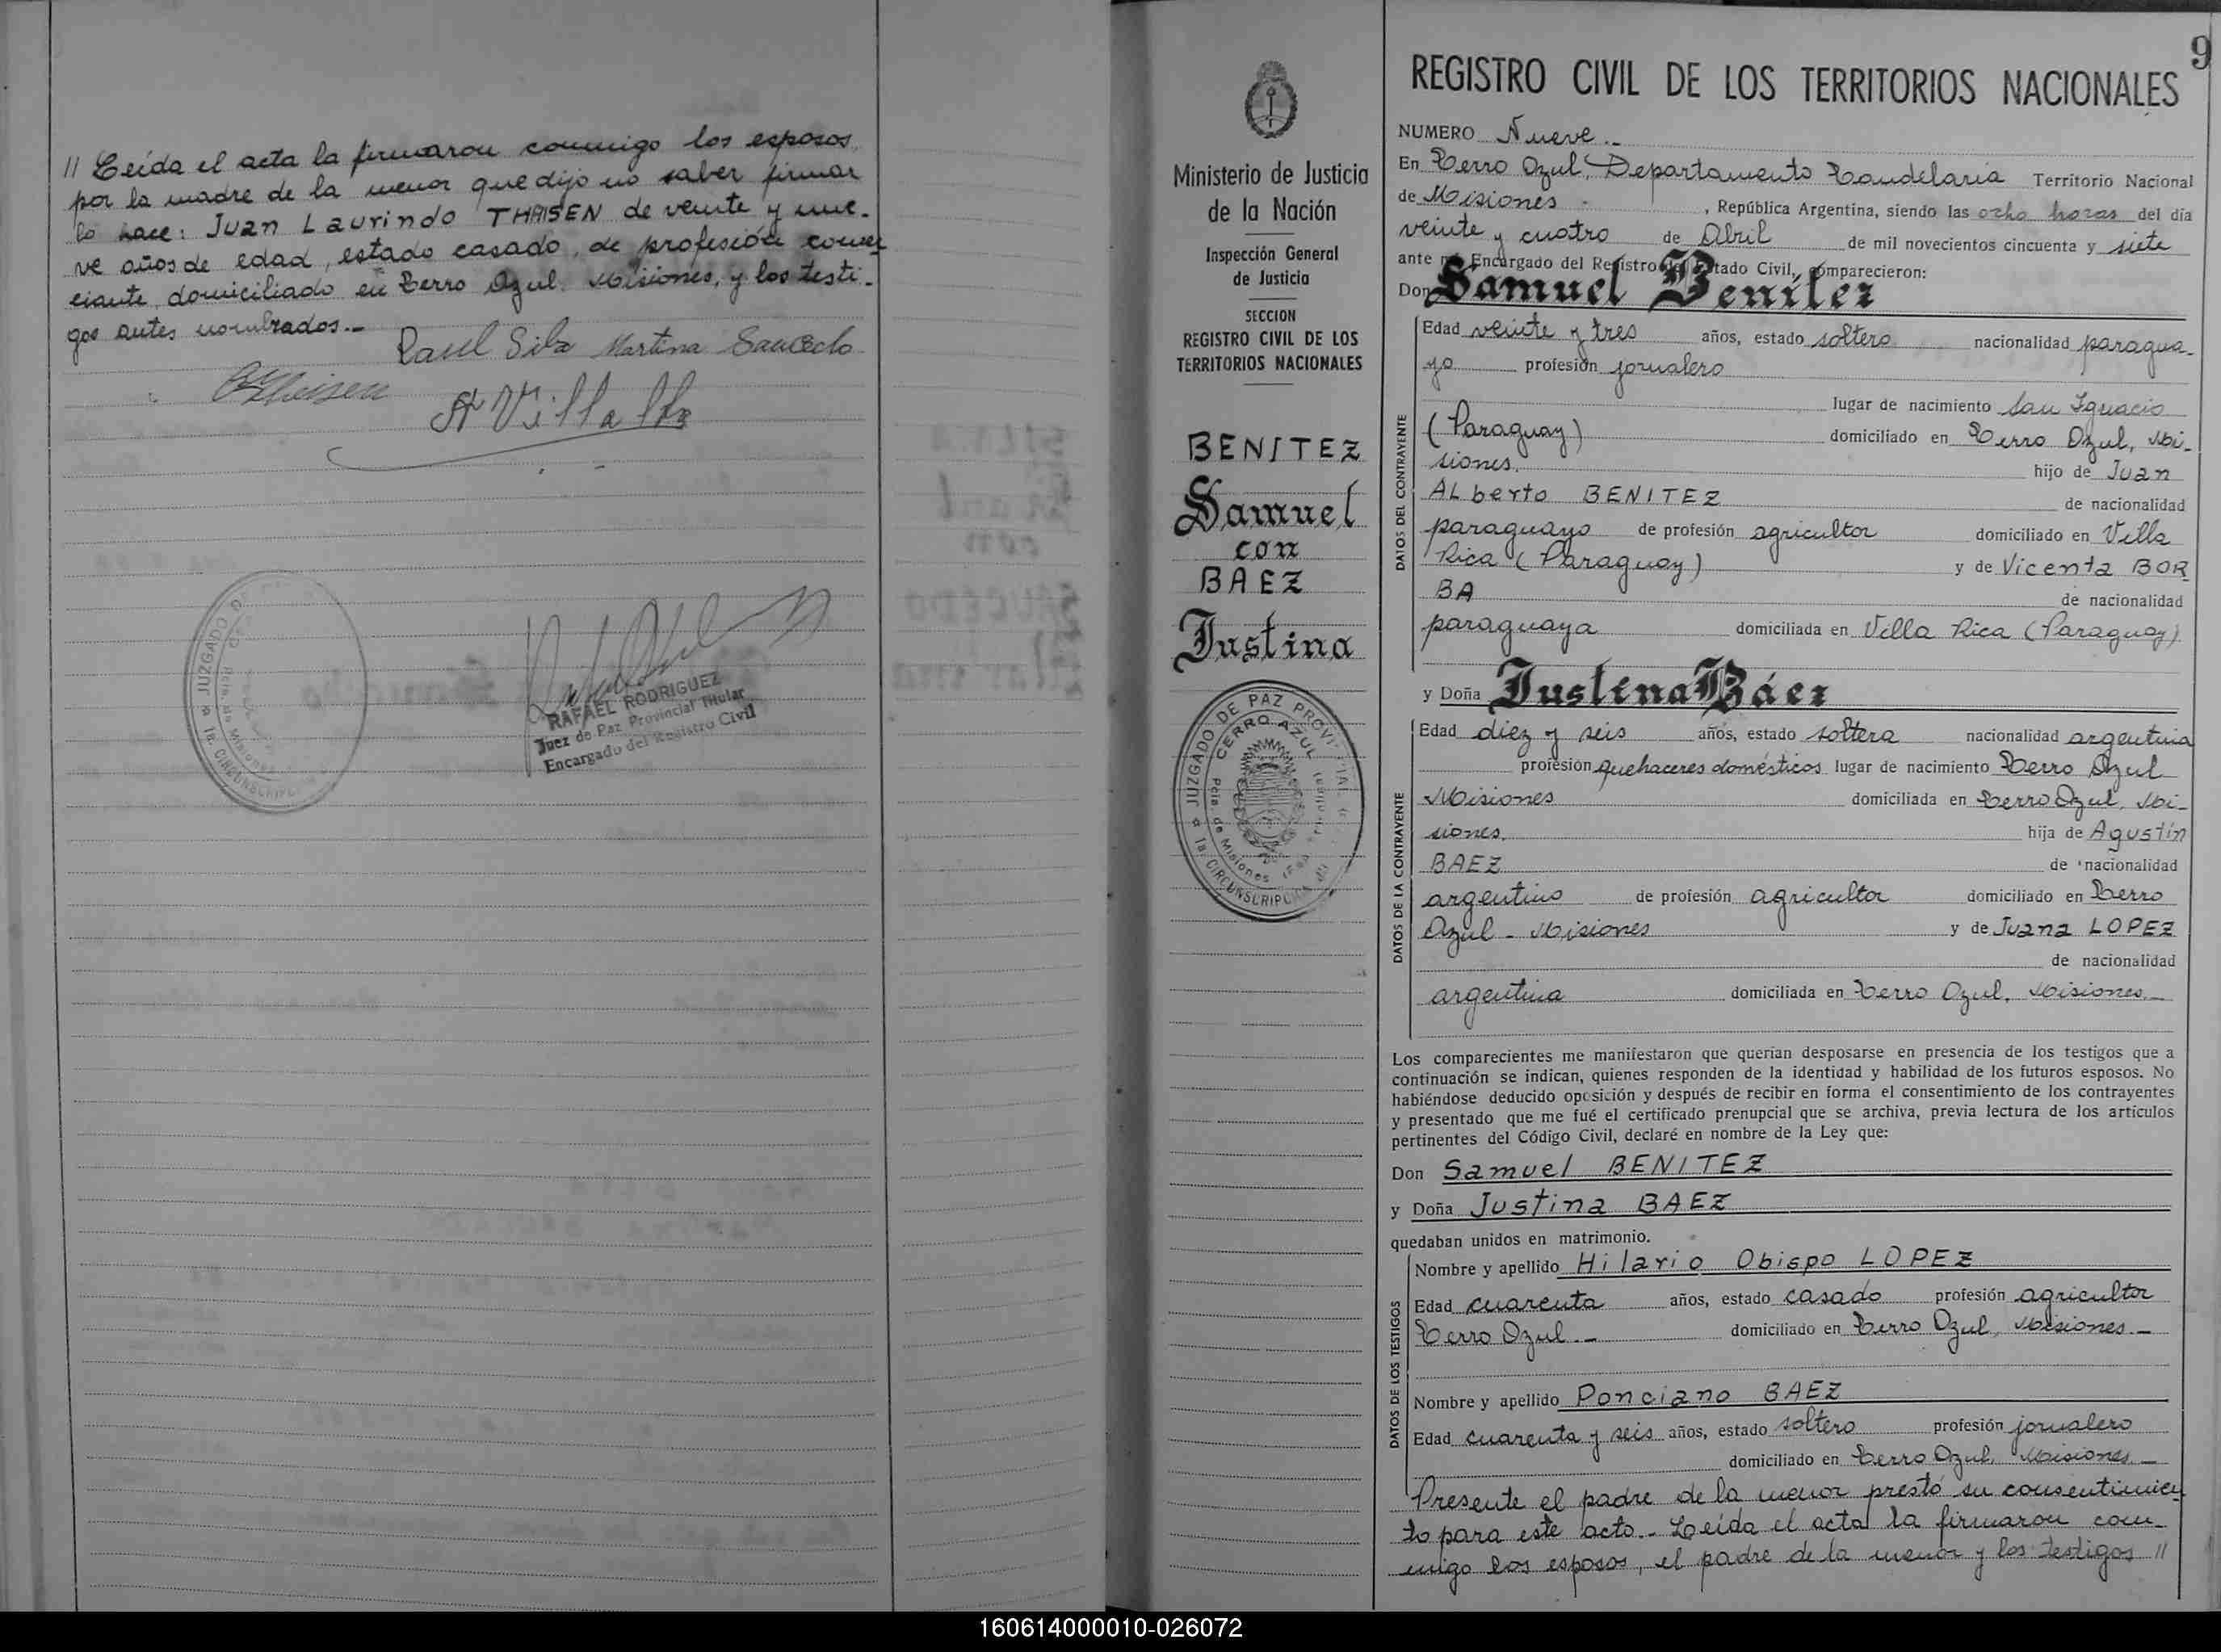 // Leída el acta la firmaron conmigo los esposos,
por la madre de la menor que dijo no saber firmar
lo hace: Juan Laurindo THAISEN de veinte y nue-
ve años de edad, estado casado, de profesión comer
ciante, domiciliado en Cerro Azul. Misiones, y los testi-
gos antes nombrados.-
Raul Silva Martina Saucedo
A Villalba
JUZGADO DE
1a. CIRCUNSCRIPC
Pcia. de Misiones
RAFAEL RODRIGUEZ
Juez de Paz Provincial Titular
Encargado del Registro Civil
9
Ministerio de Justicia
de la Nación
Inspección General
de Justicia
SECCION
REGISTRO CIVIL DE LOS
TERRITORIOS NACIONALES
BENITEZ
Samuel
con
BAEZ
Justina
JUZGADO DE PAZ PROVINCIAL
CERRO AZUL
Pcia. de Misiones
1a. CIRCUNSCRIPCION
REGISTRO CIVIL DE LOS TERRITORIOS NACIONALES
NUMERO Nueve.-
En Cerro Azul, Departamento Candelaria Territorio Nacional
de Misiones - , República Argentina, siendo las ocho horas del día
veinte y cuatro de Abril de mil novecientos cincuenta y siete
ante mí Encargado del Registro del Estado Civil, comparecieron:
Don Samuel Benítez
DATOS DEL CONTRAYENTE
Edad veinte y tres años, estado soltero nacionalidad paragua-
yo profesión jornalero
lugar de nacimiento San Ignacio
(Paraguay) domiciliado en Cerro Azul, Mi-
siones. hijo de Juan
ALberto BENITEZ de nacionalidad
paraguayo de profesión agricultor domiciliado en Villa
Rica (Paraguay) y de Vicenta BOR
BA de nacionalidad
paraguaya domiciliada en Villa Rica (Paraguay)
y Doña Justina Báez
DATOS DE LA CONTRAYENTE
Edad diez y seis años, estado soltera nacionalidad argentina
profesión quehaceres domésticos lugar de nacimiento Cerro Azul
Misiones domiciliada en Cerro Azul, Mi-
siones. hija de Agustín
BAEZ de nacionalidad
argentino de profesión agricultor domiciliado en Cerro
Azul - Misiones y de Juana LOPEZ
de nacionalidad
argentina domiciliada en Cerro Azul, Misiones.-
Los comparecientes me manifestaron que querían desposarse en presencia de los testigos que a
continuación se indican, quienes responden de la identidad y habilidad de los futuros esposos. No
habiéndose deducido oposición y después de recibir en forma el consentimiento de los contrayentes
y presentado que me fué el certificado prenupcial que se archiva, previa lectura de los artículos
pertinentes del Código Civil, declaré en nombre de la Ley que:
Don Samuel BENITEZ
y Doña Justina BAEZ
quedaban unidos en matrimonio.
DATOS DE LOS TESTIGOS
Nombre y apellido Hilario Obispo LOPEZ
Edad cuarenta años, estado casado profesión agricultor
Cerro Azul.- domiciliado en Cerro Azul, Misiones.-
Nombre y apellido Ponciano BAEZ
Edad cuarenta y seis años, estado soltero profesión jornalero
domiciliado en Cerro Azul, Misiones.-
Presente el padre de la menor prestó su consentimien
to para este acto.- Leída el acta la firmaron con-
migo los esposos, el padre de la menor y los testigos //
160614000010-026072